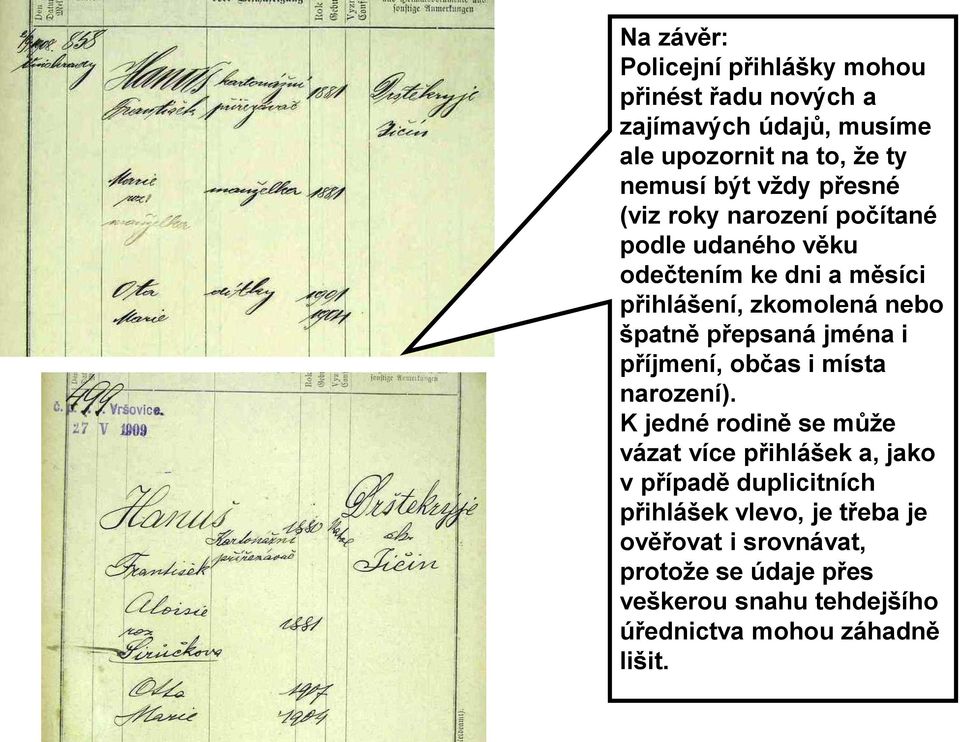 sonstige Anmerkungen
858
Vinohrady
Hanuš kartonážní 1881 Drštekryje
František přiřezávač Jičín
Marie manželka 1881
roz.
manželka
Ota dítky 1901
Marie 1904
sonstige Anmerkungen
499
č. p. Vršovice.
27 V 1909
Hanuš 1880 Drštekryje
Kartonážní
přiřezávač Jičín
František
Aloisie 1881
roz.
Siručkova
Otto 1907
Marie 1904
Na závěr:
Policejní přihlášky mohou
přinést řadu nových a
zajímavých údajů, musíme
ale upozornit na to, že ty
nemusí být vždy přesné
(viz roky narození počítané
podle udaného věku
odečtením ke dni a měsíci
přihlášení, zkomolená nebo
špatně přepsaná jména i
příjmení, občas i místa
narození).
K jedné rodině se může
vázat více přihlášek a, jako
v případě duplicitních
přihlášek vlevo, je třeba je
ověřovat i srovnávat,
protože se údaje přes
veškerou snahu tehdejšího
úřednictva mohou záhadně
lišit.